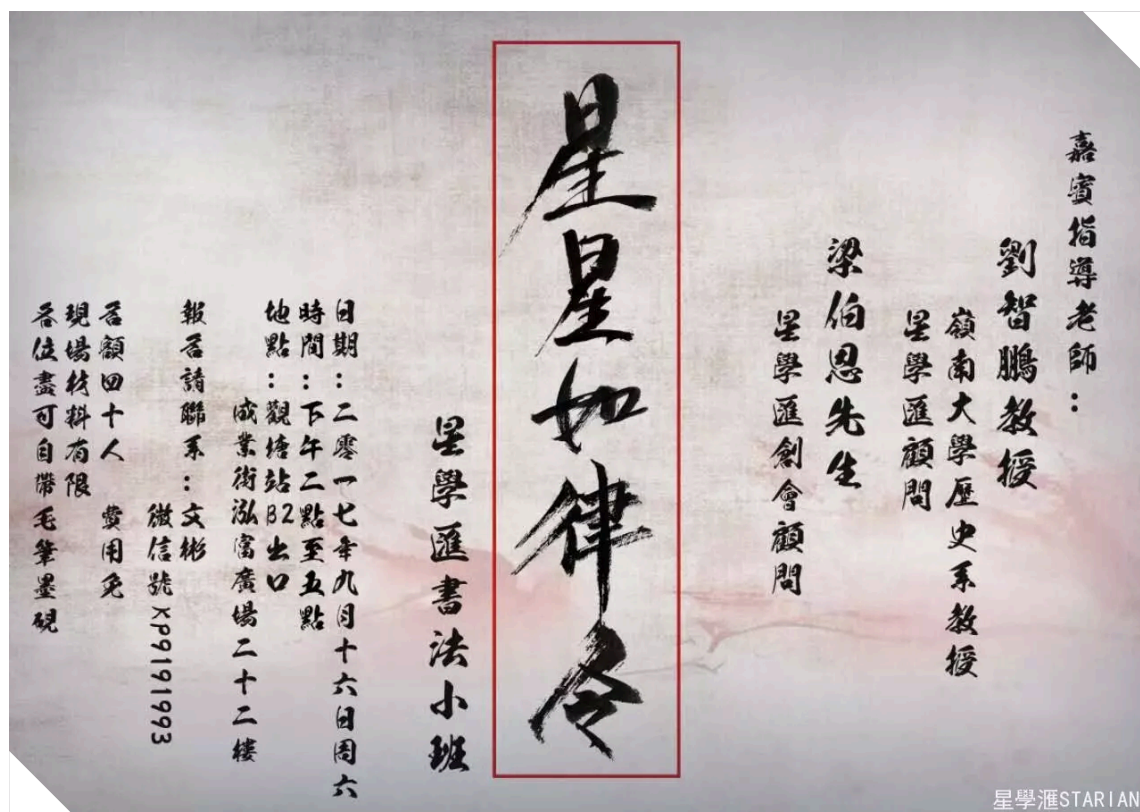 嘉賓指導老師：
劉智鵬教授
嶺南大學歷史系教授
星學匯顧問
梁伯恩先生
星學匯創會顧問
星星如律令
星學匯書法小班
日期：二零一七年九月十六日周六
時間：下午二點至五點
地點：觀塘站B2出口
成業街泓富廣場二十二樓
報名請聯系：文彬
微信號XP9191993
名額四十人 費用免
現場材料有限
各位盡可自帶毛筆墨硯
星學滙STARIAN